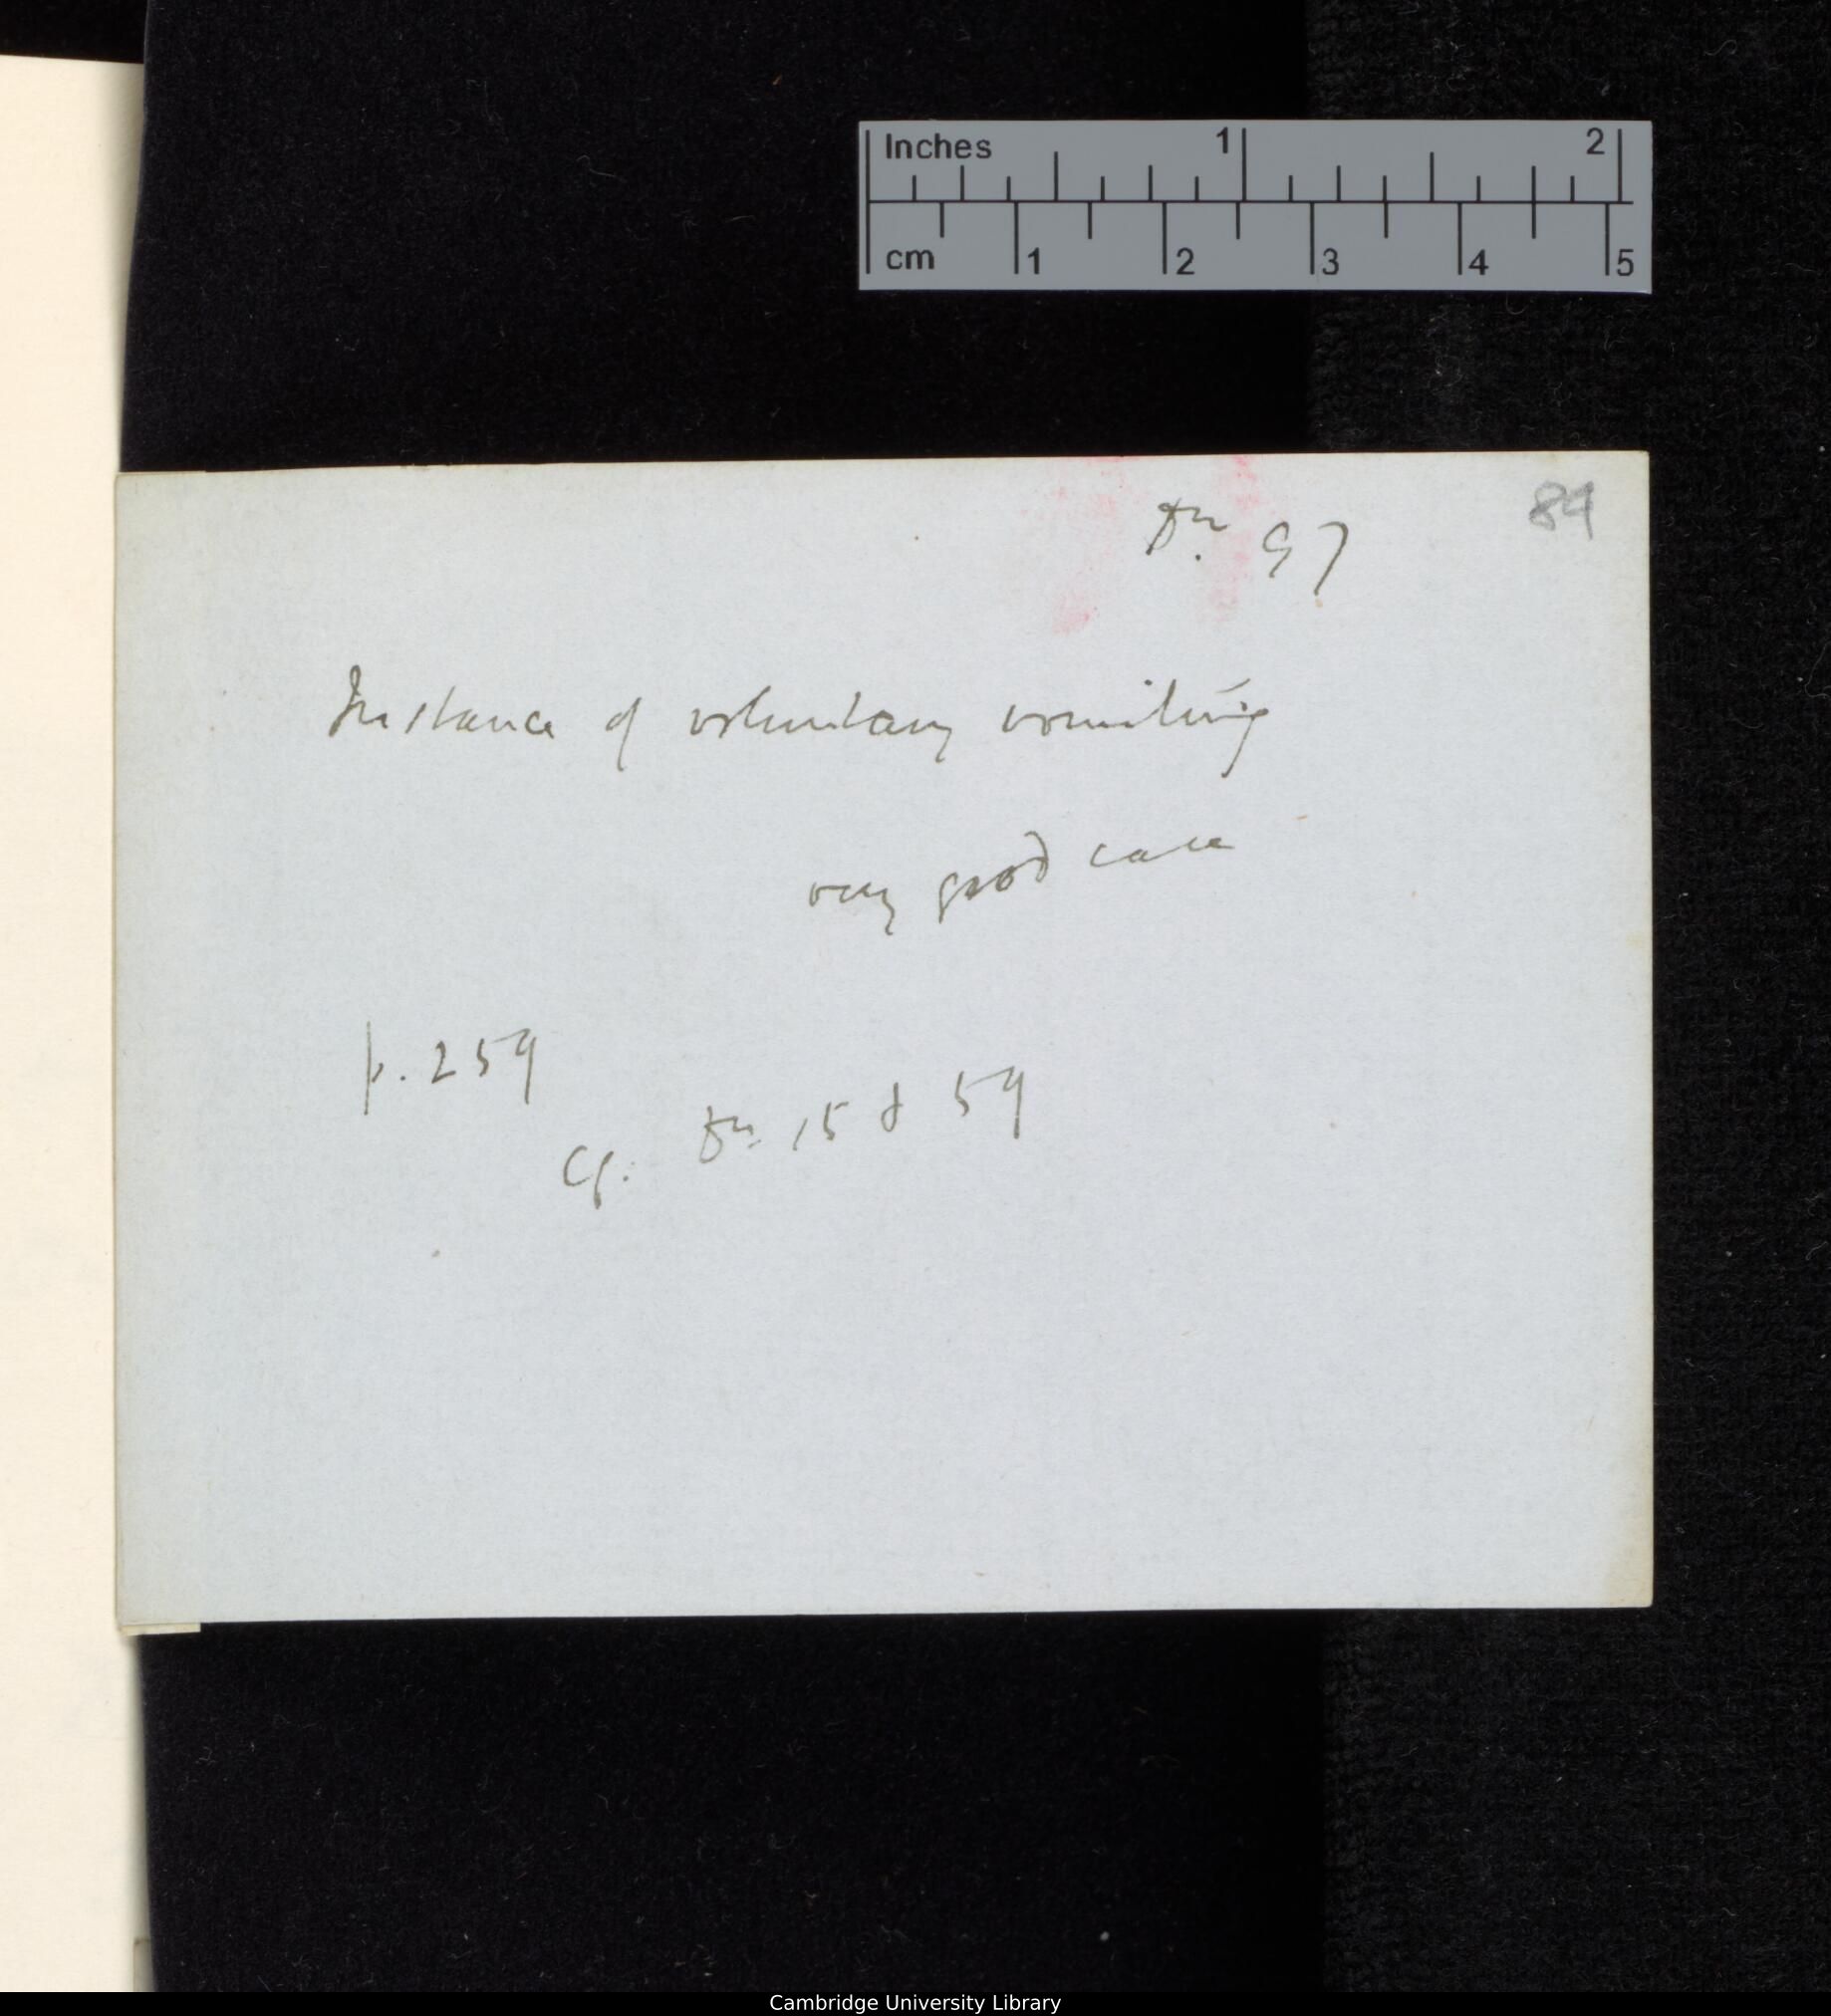 Inches 1 2
cm 1 2 3 4 5
89
Dr. 97
Instance of voluntary vomiting
very good case
p. 259
Cf. Dr. 15 & 59
Cambridge University Library